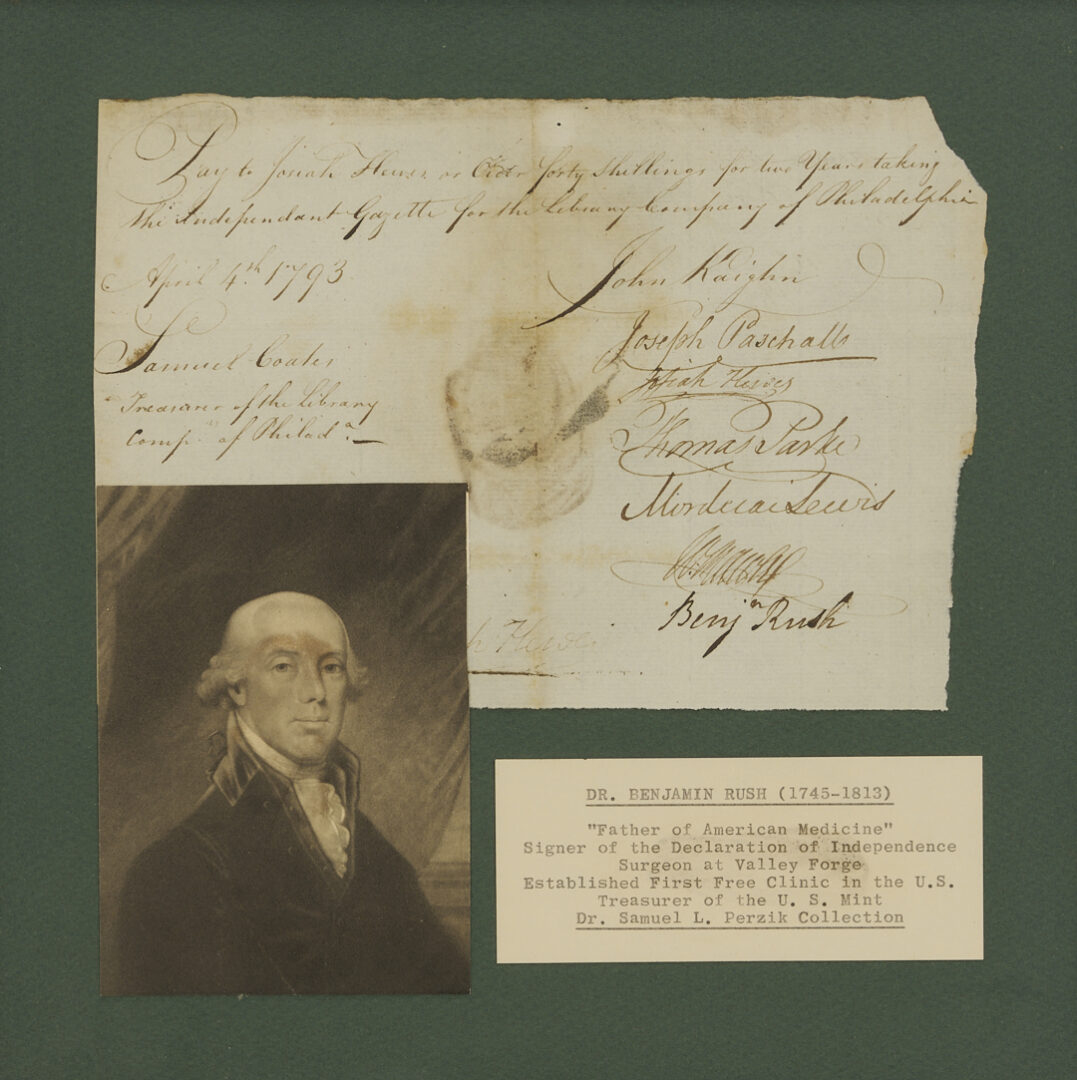 Pay to Josiah Hewes or Order forty shillings for two Years taking
the Independant Gazette for the Library Company of Philadelphia
April 4.th 1793
John Kaighn
Joseph Paschall
Samuel Coates
Josiah Hewes
Treasurer of the Library
Comp.y of Philad.a
Thomas Parke
Mordecai Lewis
Benj.n Rush
h Hewes
DR. BENJAMIN RUSH (1745-1813)
"Father of American Medicine"
Signer of the Declaration of Independence
Surgeon at Valley Forge
Established First Free Clinic in the U.S.
Treasurer of the U. S. Mint
Dr. Samuel L. Perzik Collection